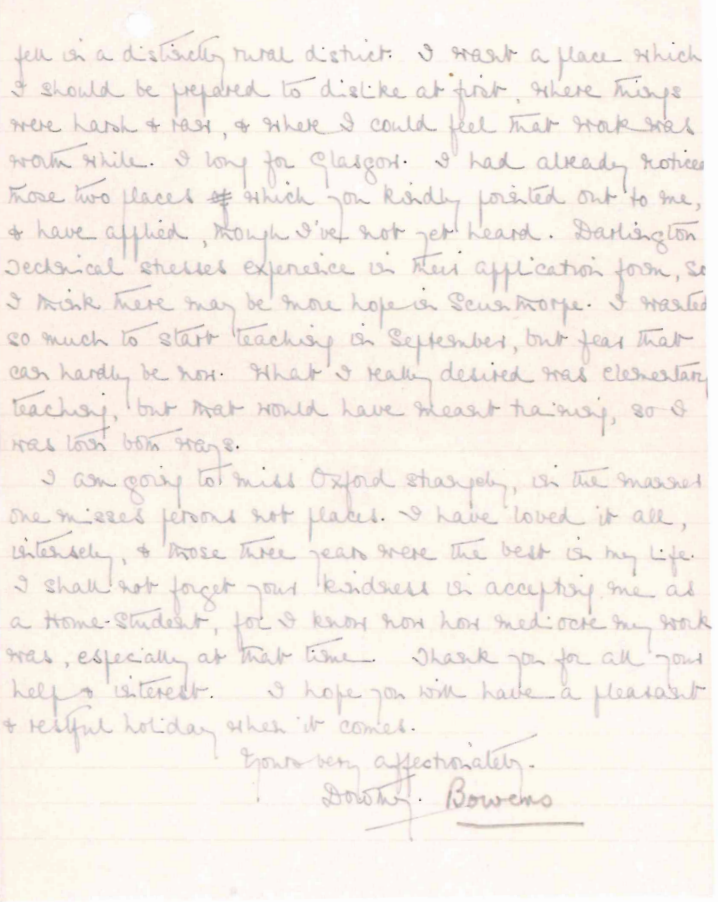 fell in a distinctly rural district. I want a place which
I should be prepared to dislike at first, where things
were harsh & raw, & where I could feel that work was
worth while. I long for Glasgow. I had already notice
those two places which you kindly pointed out to me,
& have applied, though I've not yet heard. Darlington
Technical stresses experience in their application form, so
I think there may be more hope in Scunthorpe. I wanted
so much to start teaching in September, but fear that
can hardly be now. What I really desired was elementary
teaching, but that would have meant training, so I
was torn both ways.
I am going to miss Oxford strangely, in the manner
one misses persons not places. I have loved it all,
intensely, & those three years were the best in my life.
I shall not forget your kindness in accepting me as
a Home-Student, for I know now how mediocre my work
was, especially at that time. Thank you for all your
help & interest. I hope you will have a pleasant
& restful holiday when it comes.
Yours very affectionately.
Dorothy. Bowens